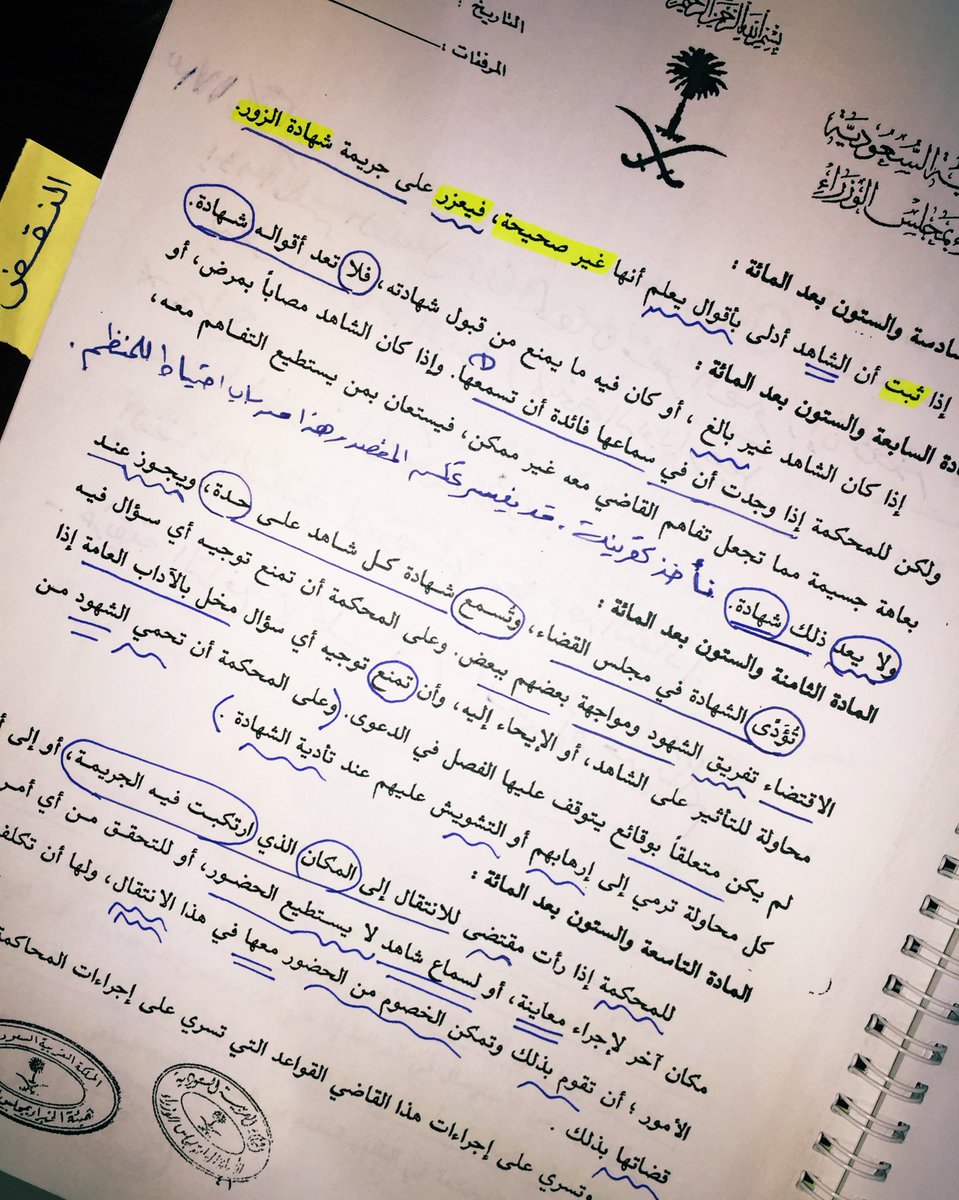 بسم الله الرحمن الرحيم
التاريخ :
المرفقات :
النقض
إذا ثبت أن الشاهد أدلى بأقوال يعلم أنها غير صحيحة، فيعزر على جريمة شهادة الزور.
السابعة والستون بعد المائة :
إذا كان الشاهد غير بالغ ، أو كان فيه ما يمنع من قبول شهادته، فلا تعد أقواله شهادة.
ولكن للمحكمة إذا وجدت أن في سماعها فائدة أن تسمعها. وإذا كان الشاهد مصاباً بمرض، أو
بعاهة جسيمة مما تجعل تفاهم القاضي معه غير ممكن، فيستعان بمن يستطيع التفاهم معه،
ولا يعد ذلك شهادة.
المادة الثامنة والستون بعد المائة :
تُؤَدَّى الشهادة في مجلس القضاء، وتُسمع شهادة كل شاهد على حدة، ويجوز عند
الاقتضاء تفريق الشهود ومواجهة بعضهم ببعض. وعلى المحكمة أن تمنع توجيه أي سؤال فيه
محاولة للتأثير على الشاهد، أو الإيحاء إليه، وأن تمنع توجيه أي سؤال مخل بالآداب العامة إذا
لم يكن متعلقاً بوقائع يتوقف عليها الفصل في الدعوى. (وعلى المحكمة أن تحمي الشهود من
كل محاولة ترمي إلى إرهابهم أو التشويش عليهم عند تأدية الشهادة .)
المادة التاسعة والستون بعد المائة :
للمحكمة إذا رأت مقتضى للانتقال إلى المكان الذي ارتكبت فيه الجريمة، أو إلى
مكان آخر لإجراء معاينة، أو لسماع شاهد لا يستطيع الحضور، أو للتحقق من أي أمر
الأمور ؛ أن تقوم بذلك وتمكن الخصوم من الحضور معها في هذا الانتقال، ولها أن
قضاتها بذلك .
وتسري على إجراءات هذا القاضي القواعد التي تسري على إجراءات